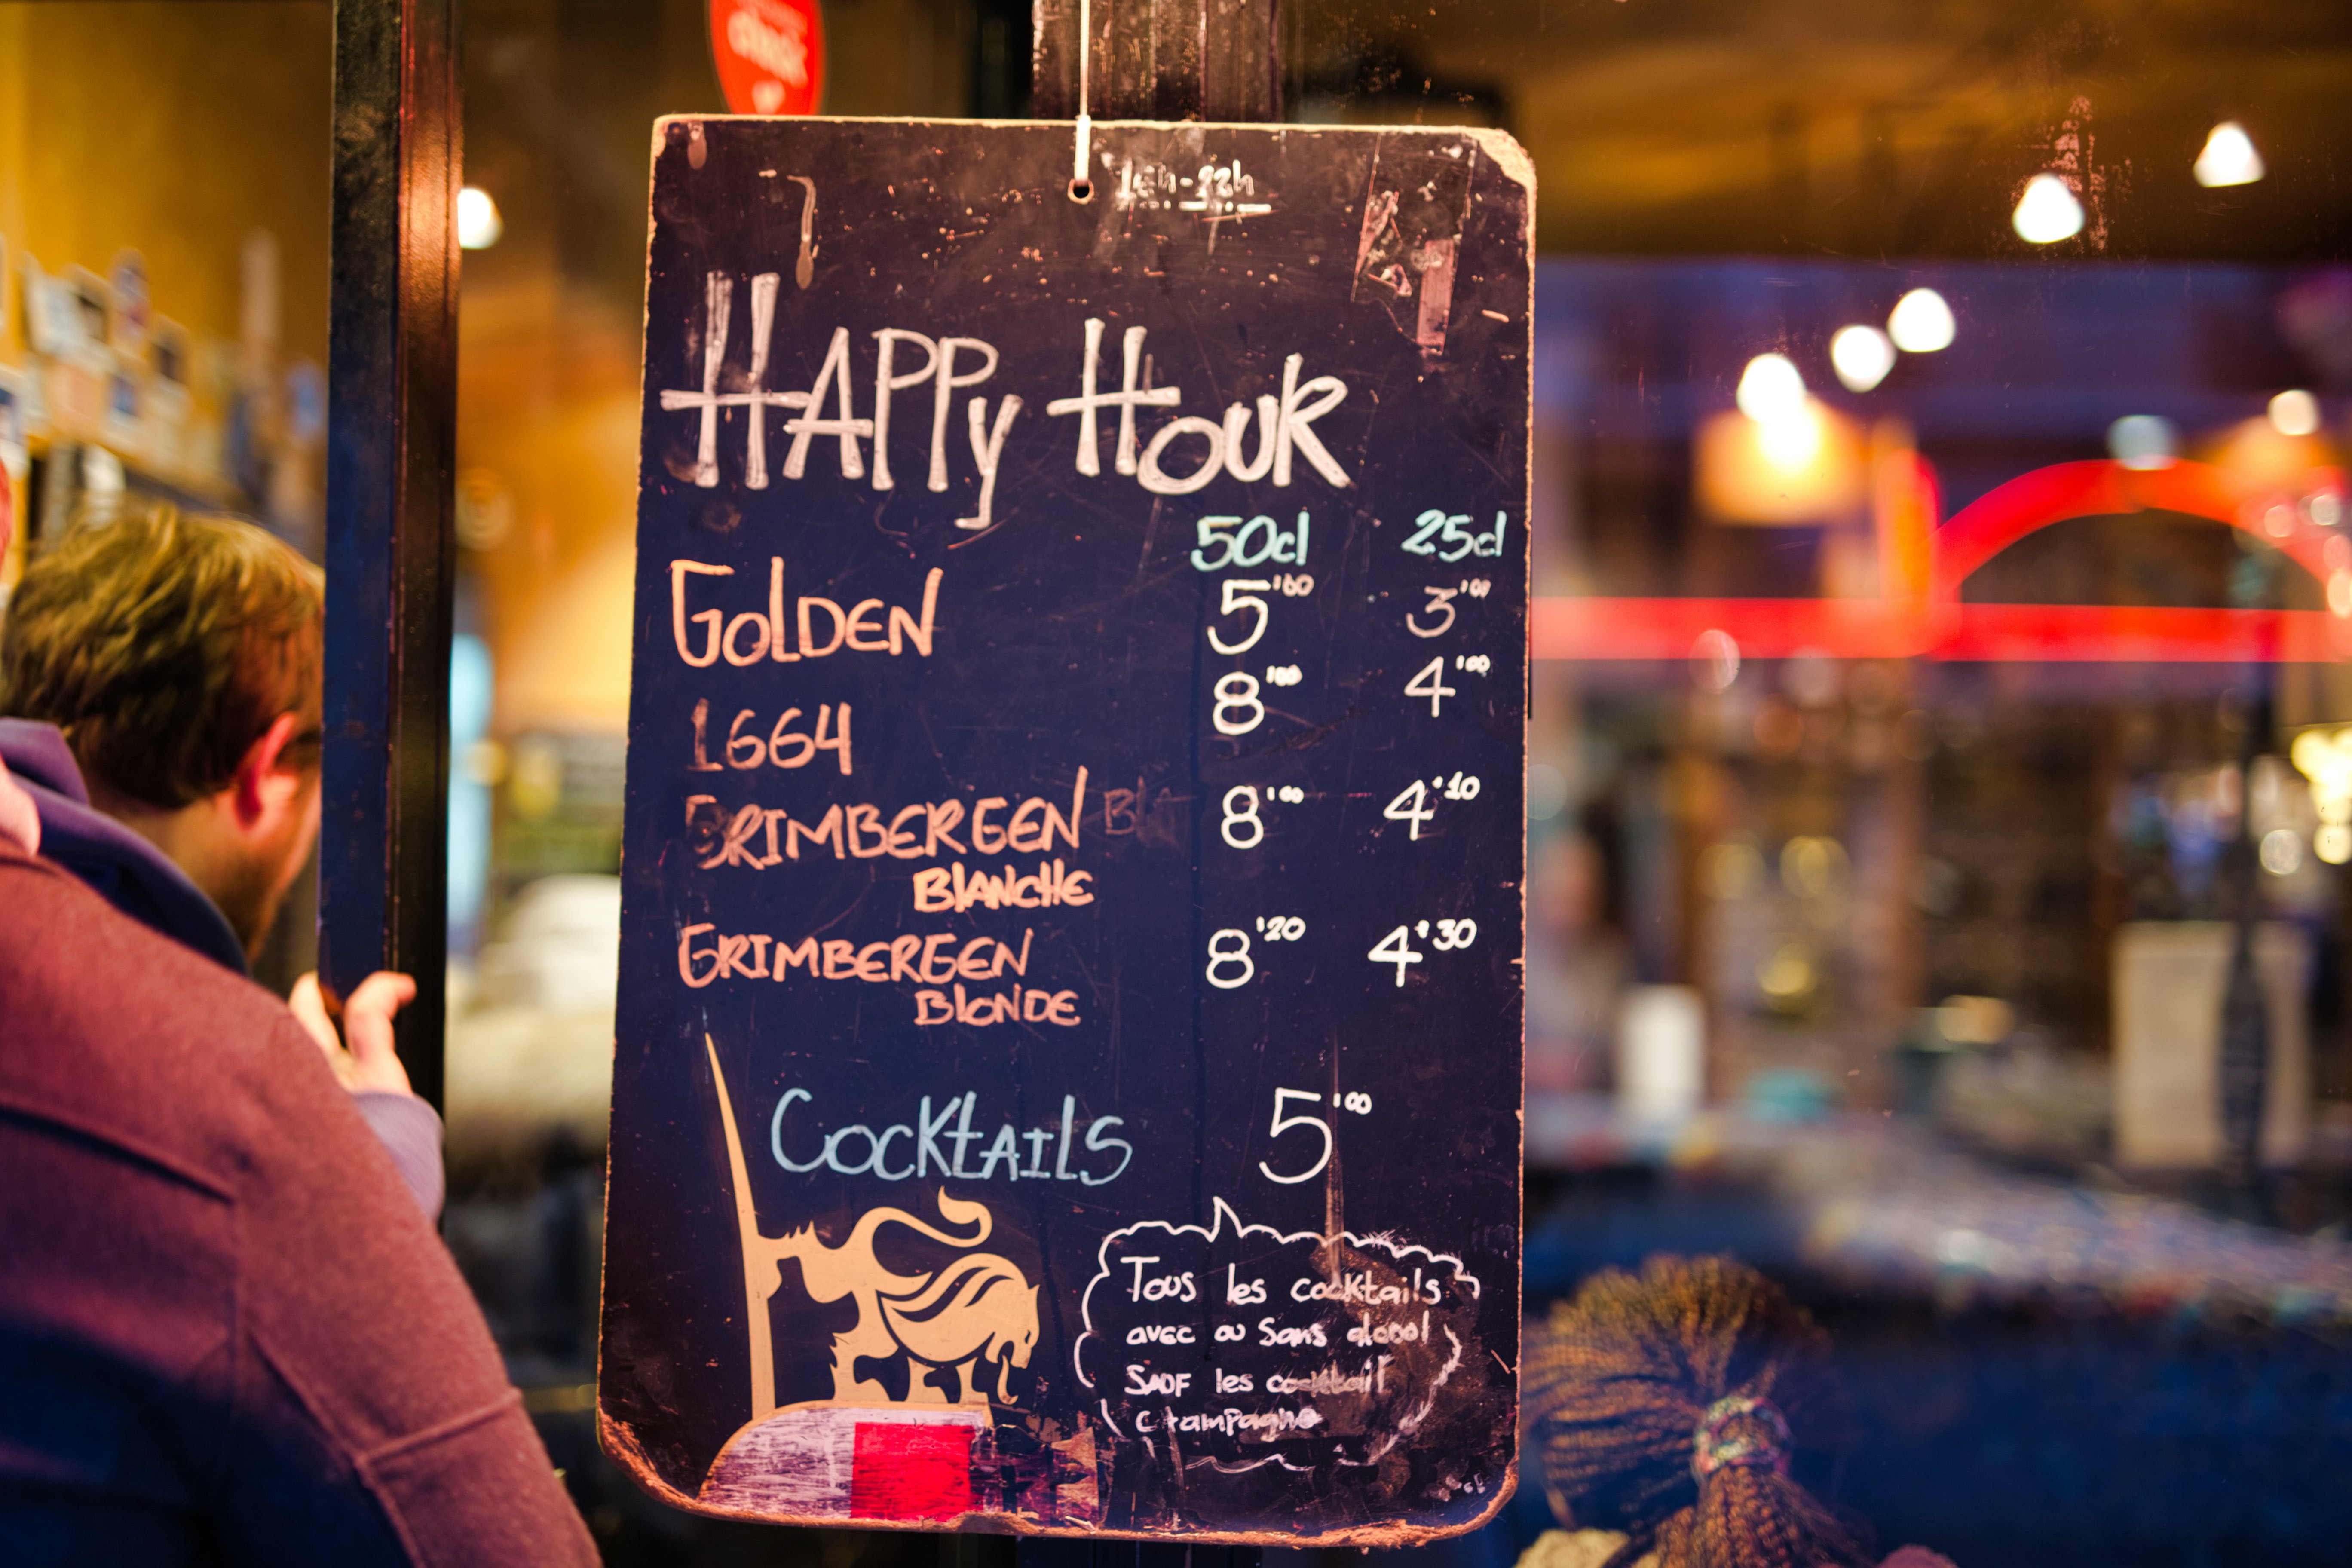 16h-22h
HAPPy HouR
50cl 25cl
GolDEN 5'00 3'00
8'00 4'00
1664
GRIMBERGEN Bla 8'00 4'10
BlANCHE
GRIMBERGEN 8'20 4'30
BloNDE
CockTAIlS 5'00
Tous les cocktails
avec ou Sans alcool
SAUF les cocktail
Champagne